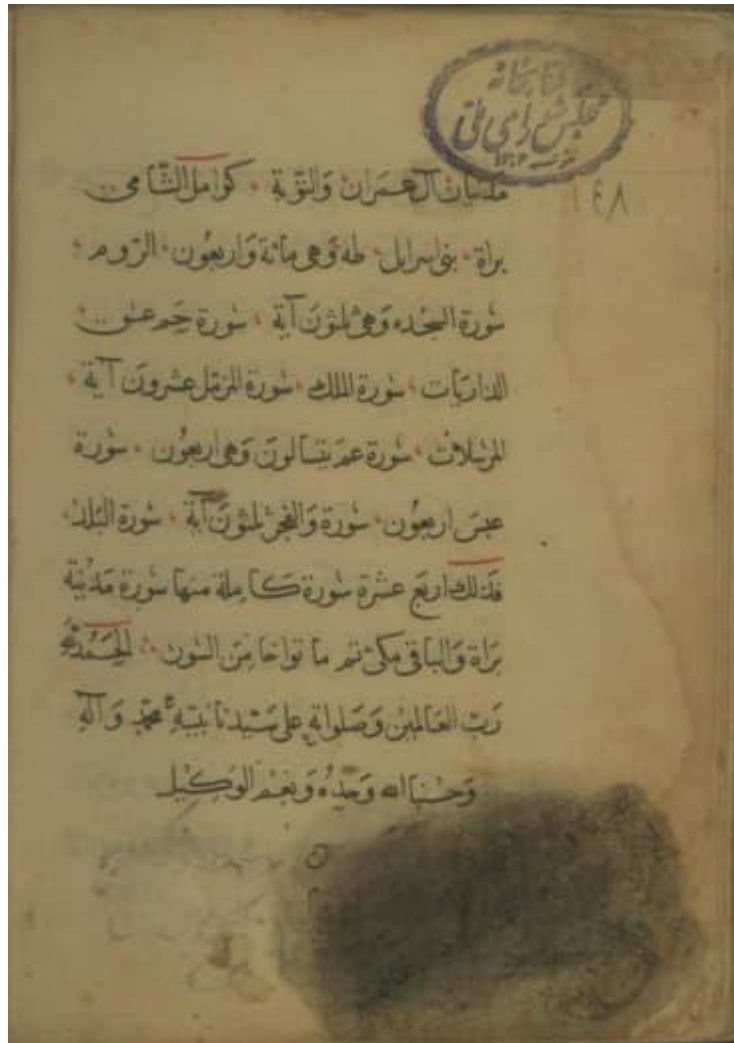 كتابخانه
مجلس شورای ملی
١٤٨
مدنيتان آل عمران والتوبة كوامل الشامى
براة بنى اسرايل طه وهى مائة واربعون الروم
سورة السجده وهى ثلثون آية سورة حم عسق
الذاريات سورة الملك سورة المزمل عشرون آية
المرسلات سورة عم يتسالون وهى اربعون سورة
عبس اربعون سورة والفجر ثلثون آية سورة البلد
فذلك اربع عشرة سورة كاملة منها سورة مدنية
براة والباقى مكى تم ما تواخا من السور الحمد لله
رب العالمين وصلواته على سيدنا نبيه محمد وآله
وحسبنا الله وحده ونعم الوكيل